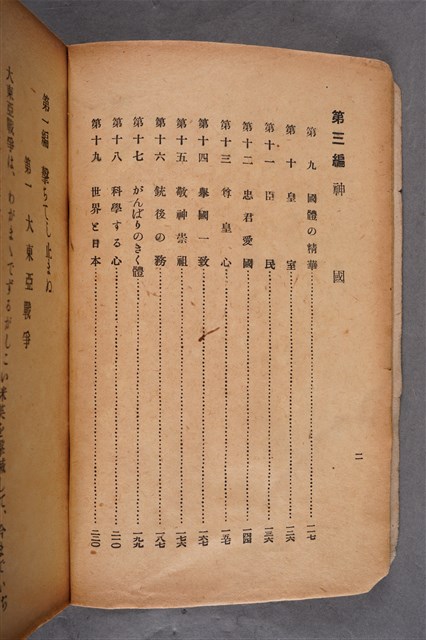 第三編 神國
第九 國體の精華 一一七
第十 皇室 一二六
第十一 臣民 一三六
第十二 忠君愛國 一四四
第十三 尊皇心 一五七
第十四 擧國一致 一六七
第十五 敬神崇祖 一七六
第十六 銃後の務 一八七
第十七 がんばりのきく體 一九九
第十八 科學する心 二一〇
第十九 世界と日本 二二〇
二
第一編 擊ちてし止まむ
第一 大東亞戰爭
大東亞戰爭は、わがまゝでずるがしこい米英を擊滅して、